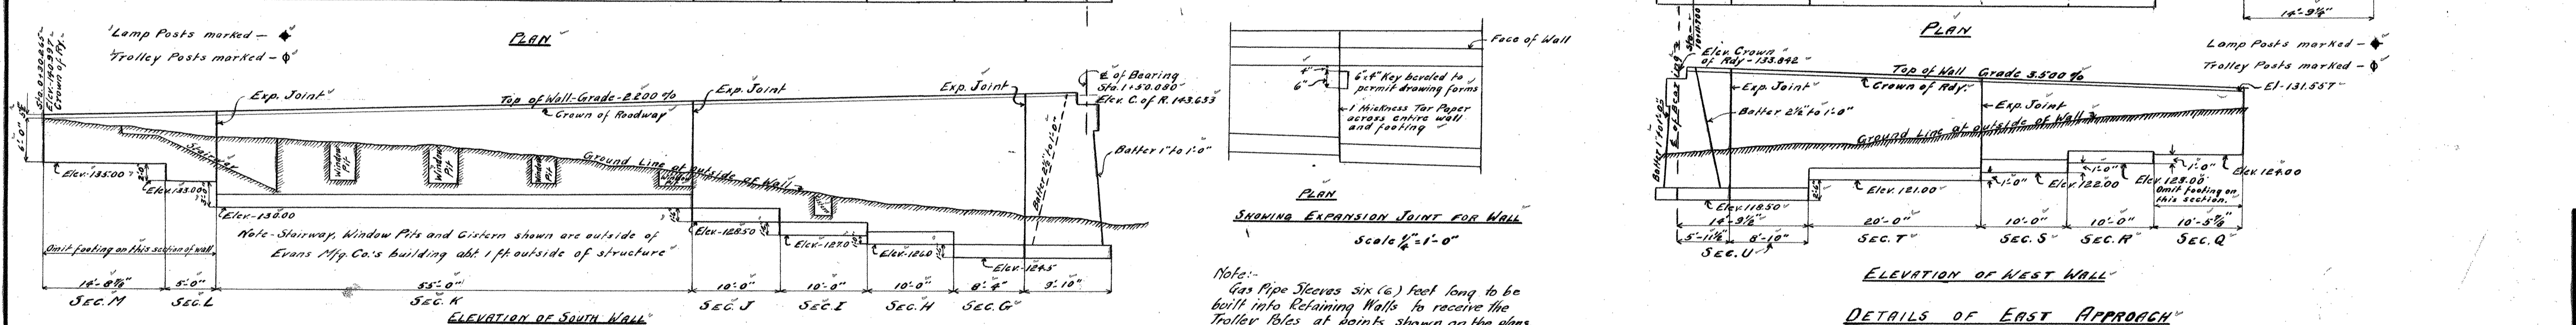 Lamp Posts marked –
Trolley Posts marked – ф
PLAN
Sta. 0+30.265
Elev. 140.997
Crown of Ry.
6'-0"
Exp. Joint
Top of Wall-Grade-2.200%
Crown of Roadway
Exp. Joint
Exp. Joint
℄ of Bearing
Sta. 1+50.080
Elev. C. of R. 143.633
Batter 2½" to 1'-0"
Batter 1" to 1'-0"
Stairway
Window Pit
Window Pit
Window Pit
Window
Ground Line at outside of Wall
Elev. 135.00
Elev. 133.00
Elev. 130.00
Elev. 128.50
Elev. 127.0
Elev. 126.0
Elev. 124.5
Omit footing on this section of wall
Note- Stairway, Window Pits and Cistern shown are outside of
Evans Mfg. Co.'s building abt. 1 ft. outside of structure
14'-8⅞" 5'-0" 55'-0" 10'-0" 10'-0" 10'-0" 8'-4" 9'-10"
SEC. M SEC. L SEC. K SEC. J SEC. I SEC. H SEC. G
ELEVATION OF SOUTH WALL
Face of Wall
4"
6"
6"x4" Key beveled to
permit drawing forms
1 thickness Tar Paper
across entire wall
and footing
PLAN
SHOWING EXPANSION JOINT FOR WALL
Scale ¼"=1'-0"
Note:-
Gas Pipe Sleeves six (6) feet long to be
built into Retaining Walls to receive the
Trolley Poles at points shown on the plans
14'-9¼"
PLAN
Lamp Posts marked –
Trolley Posts marked – ф
Elev. Crown
of Rdy – 133.842
Top of Wall Grade 3.500%
Crown of Rdy.
El- 131.557
Exp. Joint
Exp. Joint
Batter 2½" to 1'-0"
Batter 1" to 1'-0"
℄ of Bearing
Ground Line at outside of Wall
Elev. 118.50
Elev. 121.00
1'-0"
Elev. 122.00
1'-0"
Elev. 123.00
1'-0"
Elev. 124.00
Omit footing on
this section.
14'-9½" 20'-0" 10'-0" 10'-0" 10'-5⅞"
5'-11½" 8'-10"
SEC. U SEC. T SEC. S SEC. R SEC. Q
ELEVATION OF WEST WALL
DETAILS OF EAST APPROACH